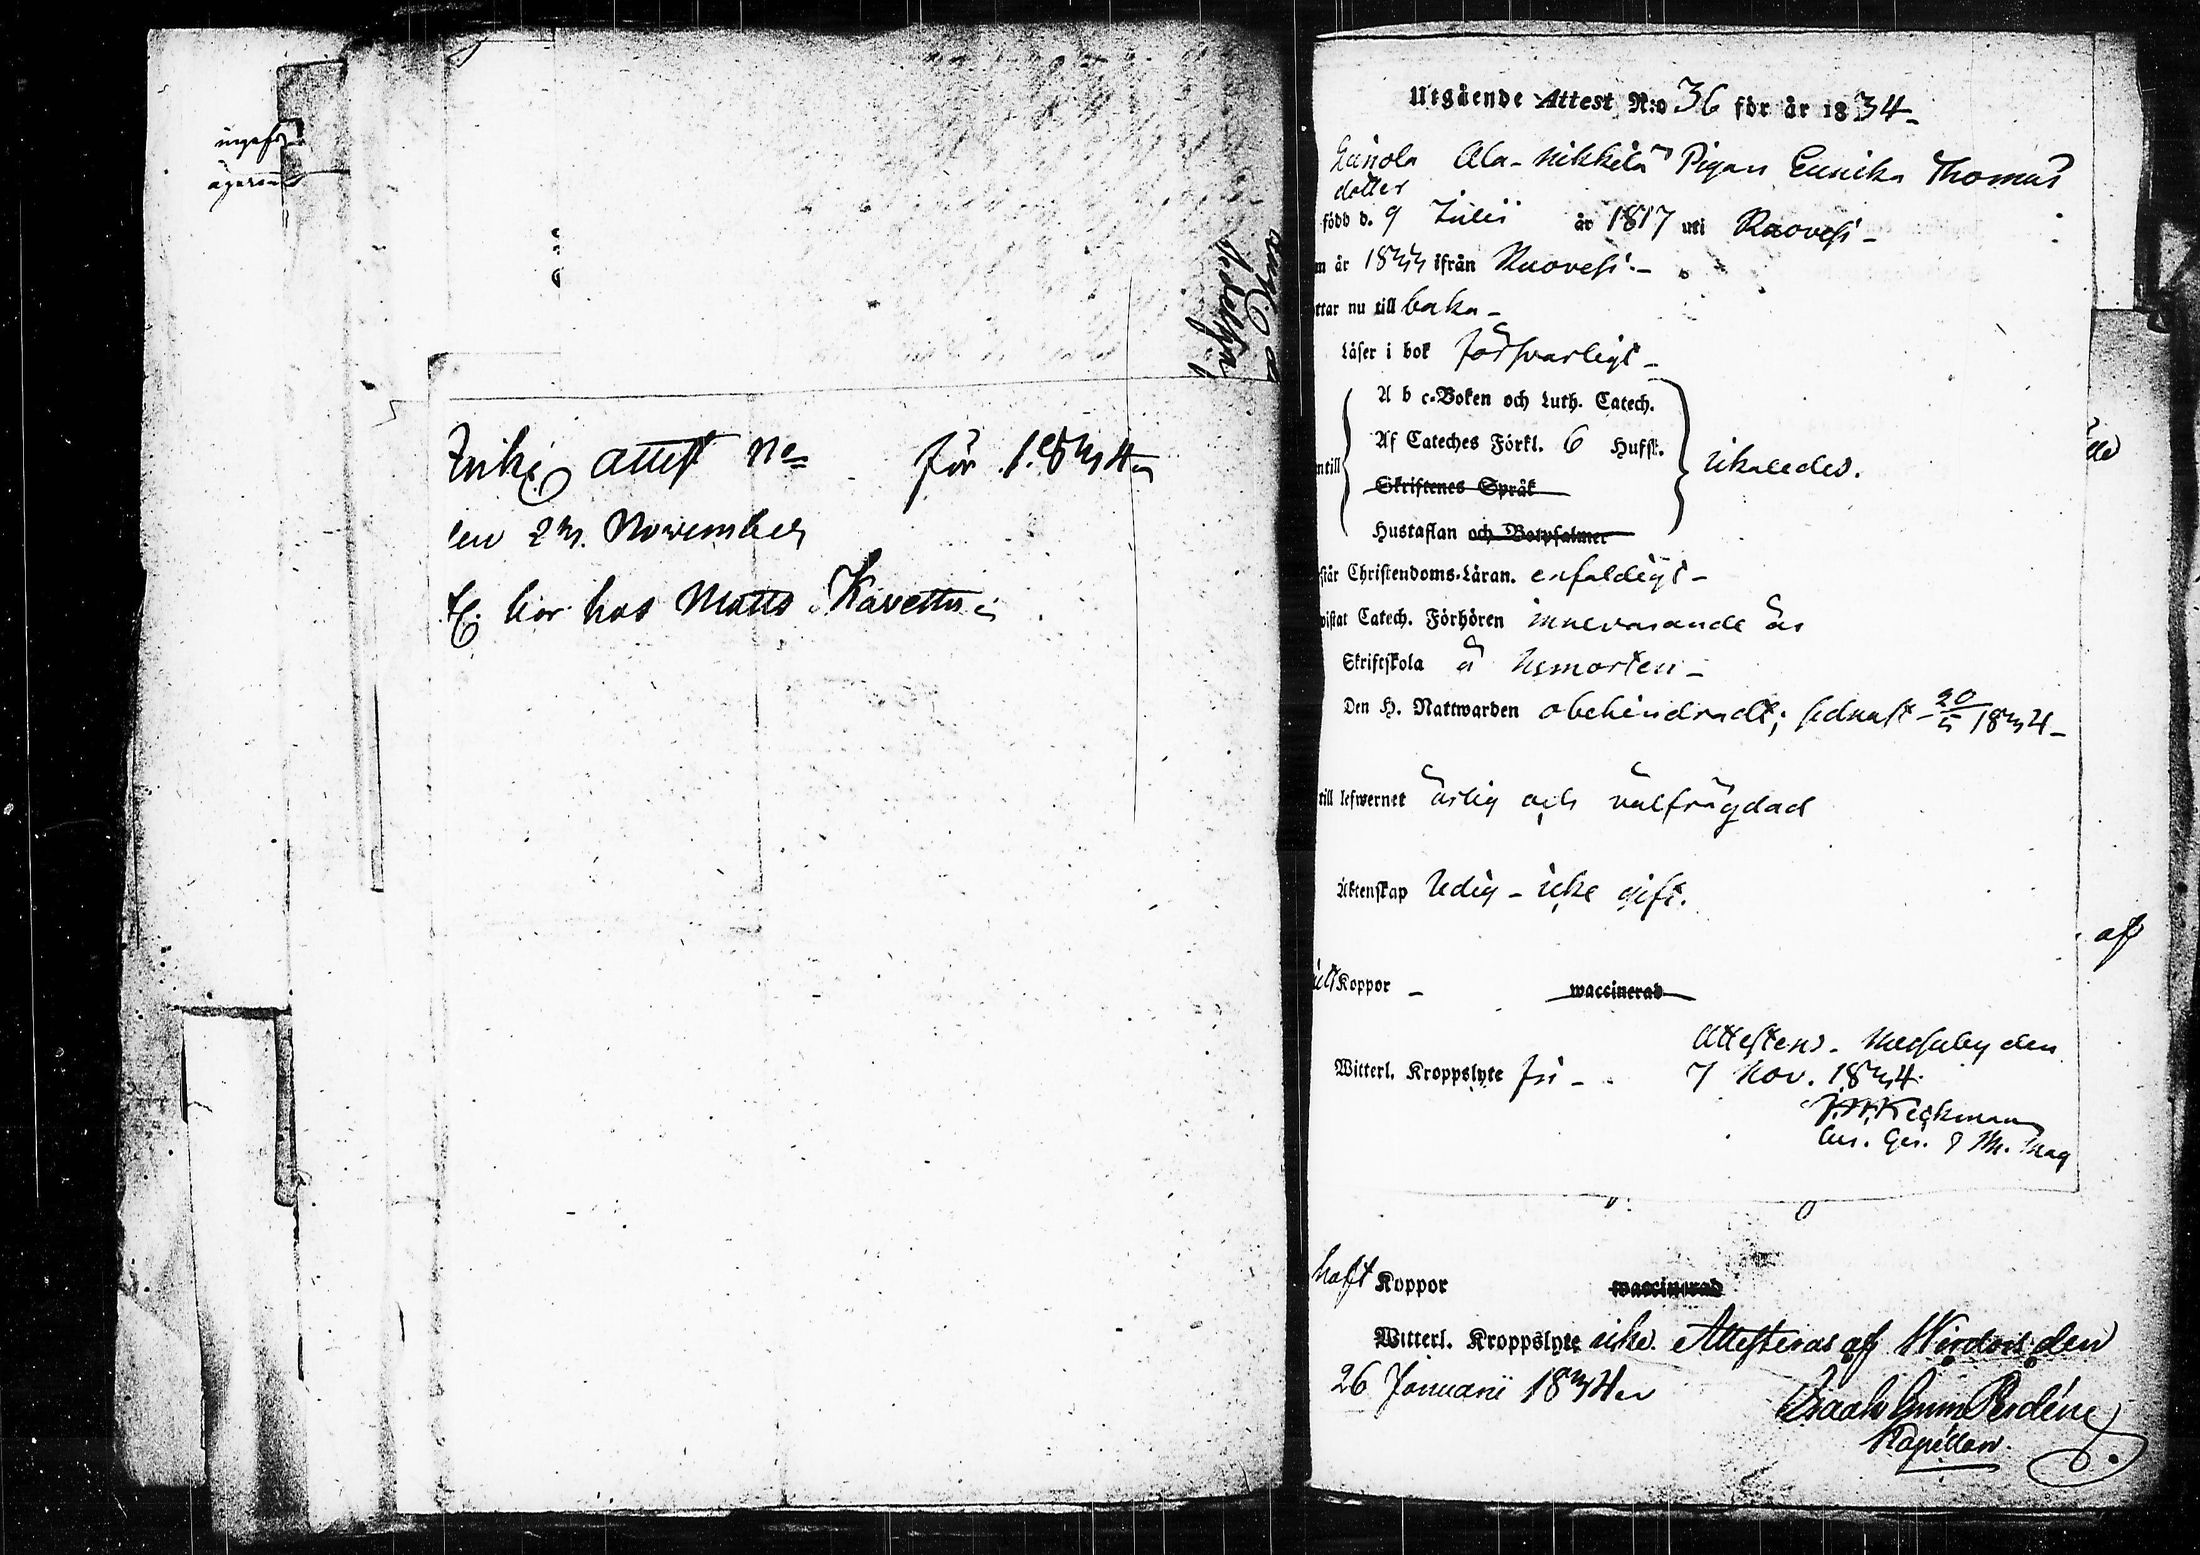 attest No för 1834
den 23. November
bor hos Matts
Utgående Attest N:o 36 för år 1834
Ala-Mikkilä Pigan Eurika Thomas
dotter
född d. 9 Julii år 1817 uti Ruovesi
m år 1833 ifrån Ruovesi
ttar nu till baka
Läser i bok försvarligt
A b c-Boken och Luth. Catech.
Af Cateches Förkl. 6 Hufst.
ntill
likaledes.
Skriftenes Språk
Hustaflan och Botpsalmer
står Christendoms-Läran. enfaldigt
vistat Catech. Förhören innevarande år
Skriftskola å hemorten
Den H. Nattwarden obehindradt; sednast 20/5 1834
till lefwernet ärlig och välfrägdad
Äktenskap ledig - icke gift.
Koppor waccinerad
Attesteras. Messuby den
Witterl. Kroppslyte fri 7 Nov. 1834
Keckman
haft Koppor waccinerad
Witterl. Kroppslyte icke. Attesteras af Wirdois den
26 Januarii 1834
Isaak
Kapellan.
af